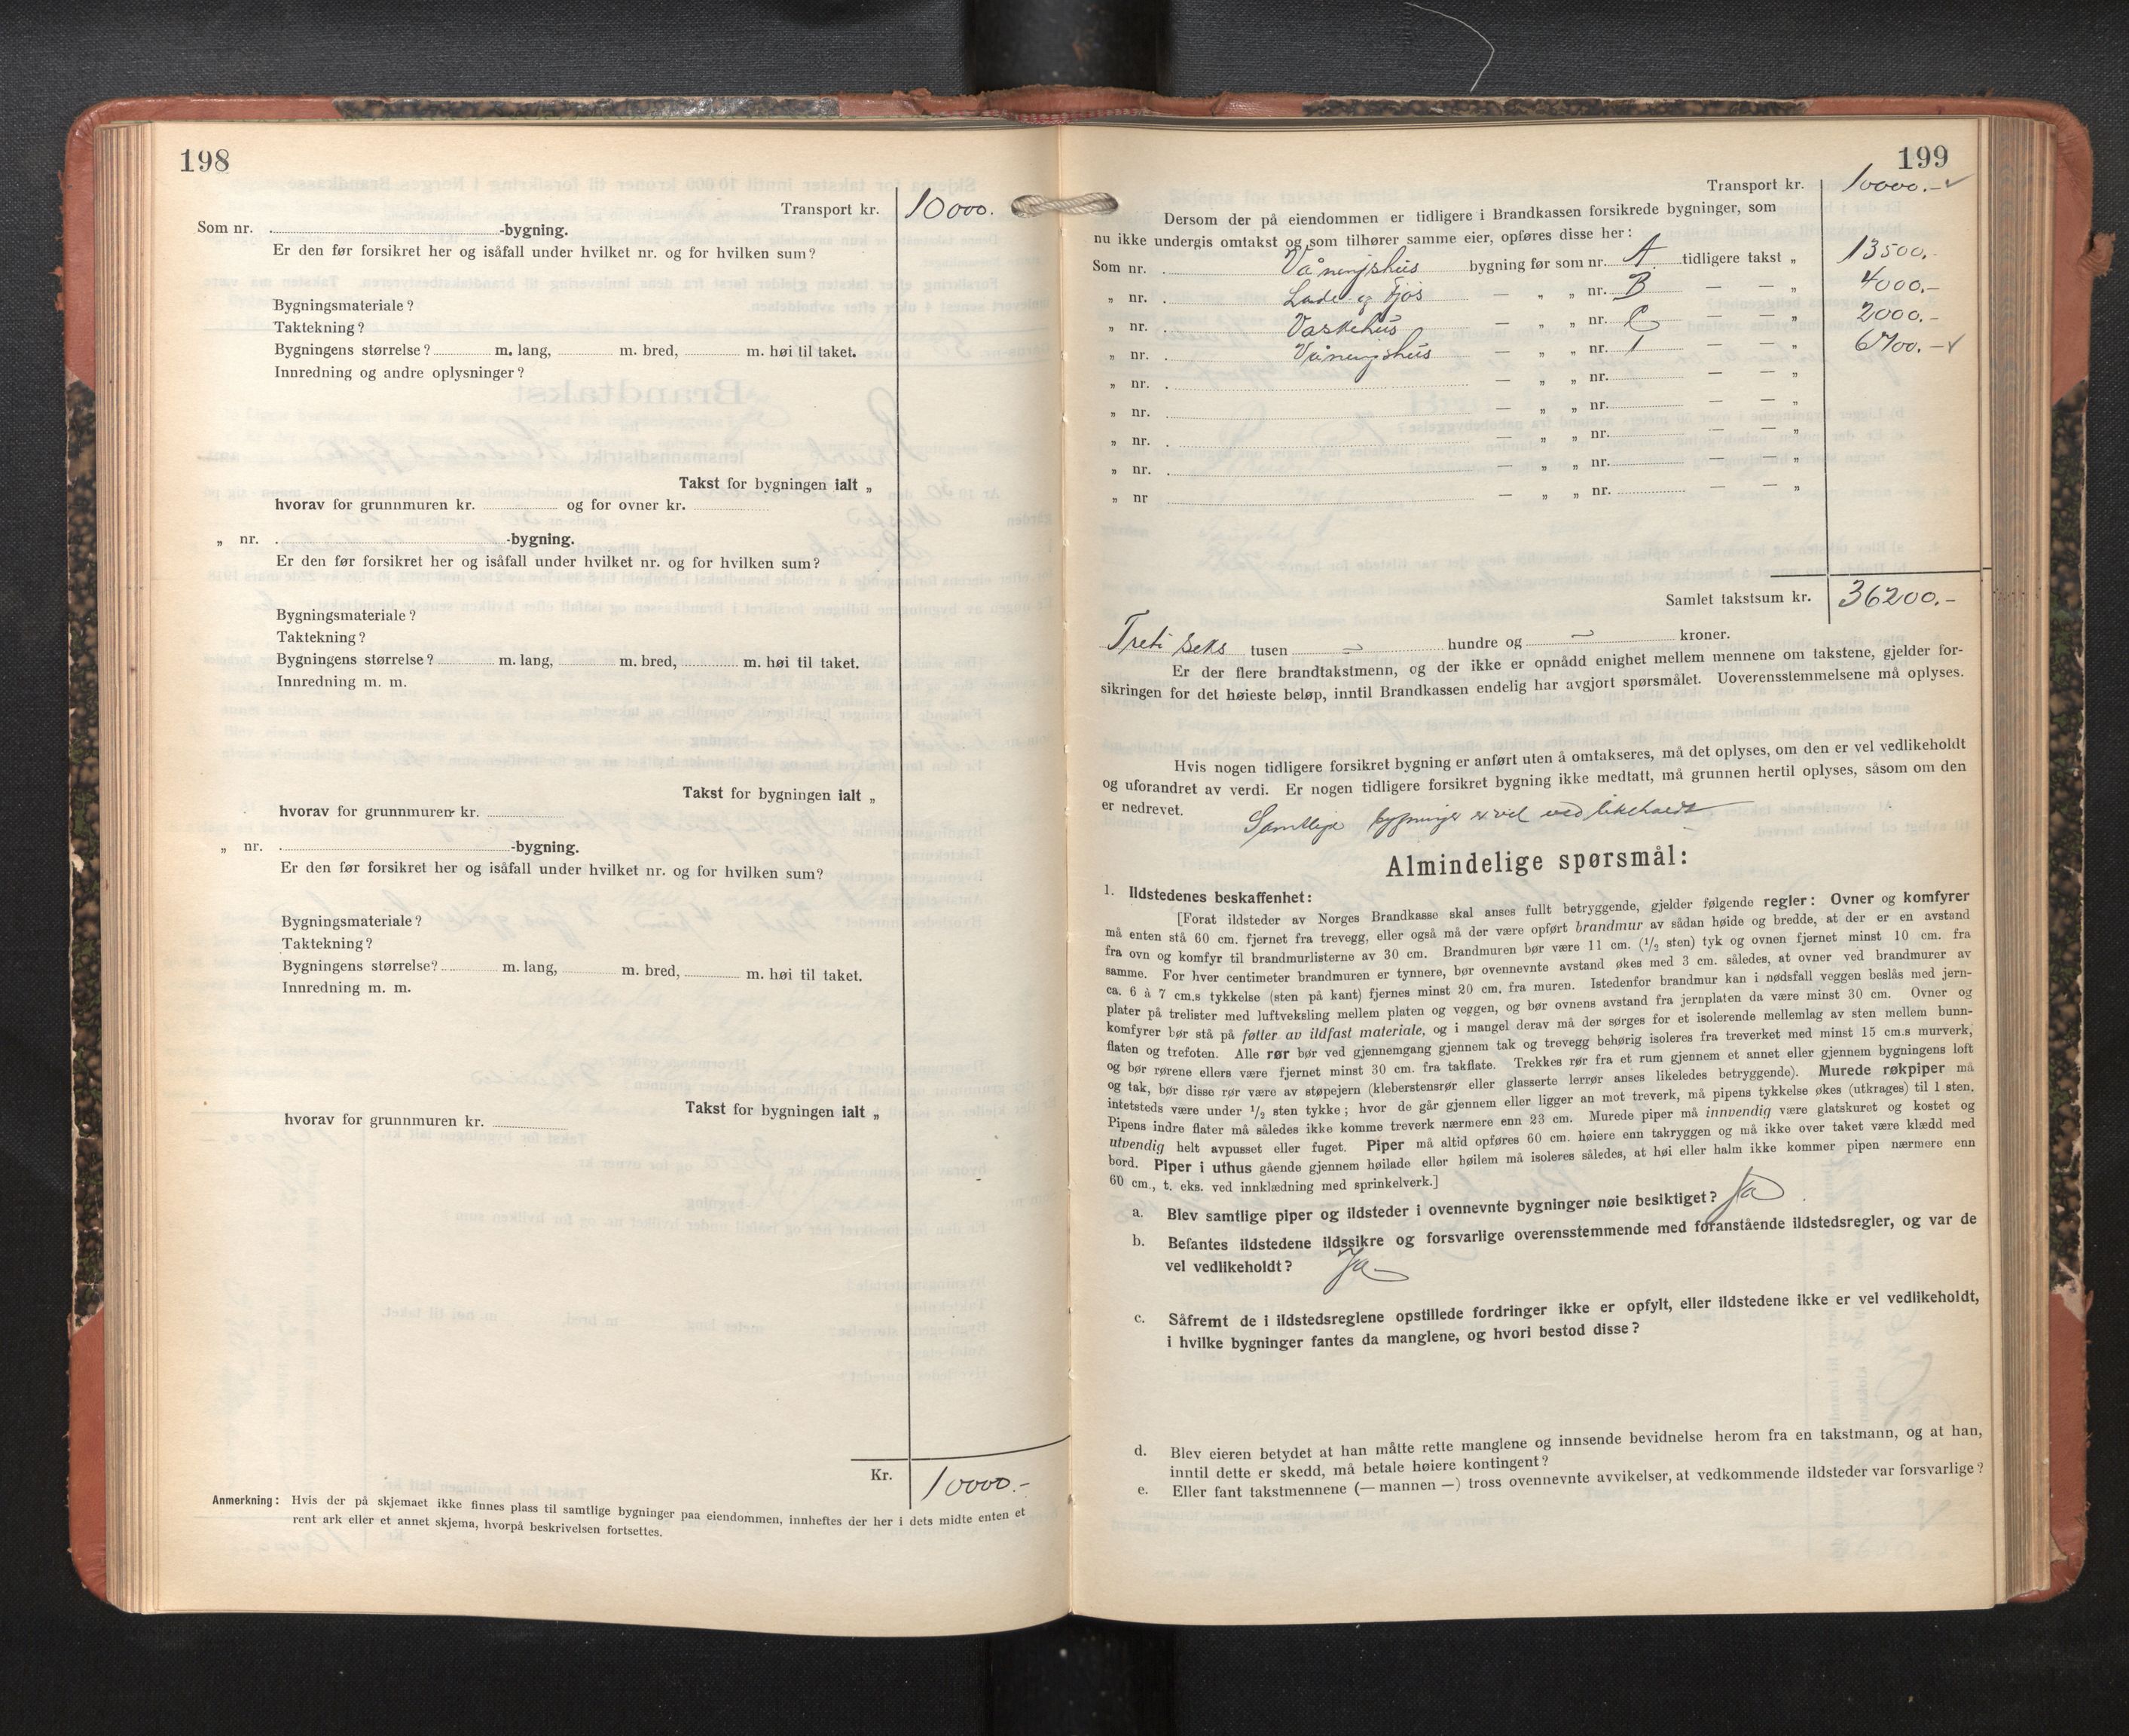 198
Transport kr. 10000.
Som nr. -bygning.
Er den før forsikret her og isåfall under hvilket nr. og for hvilken sum?
Bygningsmateriale?
Taktekning?
Bygningens størrelse? m. lang, m. bred, m. høi til taket.
Innredning og andre oplysninger?
Takst for bygningen ialt „
hvorav for grunnmuren kr. og for ovner kr.
„ nr. -bygning.
Er den før forsikret her og isåfall under hvilket nr. og for hvilken sum?
Bygningsmateriale?
Taktekning?
Bygningens størrelse? m. lang, m. bred, m. høi til taket.
Innredning m. m.
Takst for bygningen ialt „
hvorav for grunnmuren kr.
„ nr. -bygning.
Er den før forsikret her og isåfall under hvilket nr. og for hvilken sum?
Bygningsmateriale?
Taktekning?
Bygningens størrelse? m. lang, m. bred, m. høi til taket.
Innredning m. m.
Takst for bygningen ialt „
hvorav for grunnmuren kr.
Kr. 10000.-
Anmerkning: Hvis der på skjemaet ikke finnes plass til samtlige bygninger paa eiendommen, innheftes der her i dets midte enten et
rent ark eller et annet skjema, hvorpå beskrivelsen fortsettes.
199
Transport kr. 10000.-
Dersom der på eiendommen er tidligere i Brandkassen forsikrede bygninger, som
nu ikke undergis omtakst og som tilhører samme eier, opføres disse her:
Som nr. Våningshus bygning før som nr. A. tidligere takst „ 13500.-
„ nr. Lade og Fjös — „ „ nr. B — — „ 4000.-
„ nr. Vaskehus — „ „ nr. C — — „ 2000.-
„ nr. Våningshus — „ „ nr. 1 — — „ 6700.-
„ nr. — „ „ nr. — — „
„ nr. — „ „ nr. — — „
„ nr. — „ „ nr. — — „
„ nr. — „ „ nr. — — „
„ nr — „ „ nr. — — „
Samlet takstsum kr. 36200.-
Treti seks tusen hundre og kroner.
Er der flere brandtakstmenn, og der ikke er opnådd enighet mellem mennene om takstene, gjelder for-
sikringen for det høieste beløp, inntil Brandkassen endelig har avgjort spørsmålet. Uoverensstemmelsene må oplyses.
Hvis nogen tidligere forsikret bygning er anført uten å omtakseres, må det oplyses, om den er vel vedlikeholdt
og uforandret av verdi. Er nogen tidligere forsikret bygning ikke medtatt, må grunnen hertil oplyses, såsom om den
er nedrevet. Samtlige bygninger er vel vedlikeholdt
Almindelige spørsmål:
1. Ildstedenes beskaffenhet:
[Forat ildsteder av Norges Brandkasse skal anses fullt betryggende, gjelder følgende regler: Ovner og komfyrer
må enten stå 60 cm. fjernet fra trevegg, eller også må der være opført brandmur av sådan høide og bredde, at der er en avstand
fra ovn og komfyr til brandmurlisterne av 30 cm. Brandmuren bør være 11 cm. (1/2 sten) tyk og ovnen fjernet minst 10 cm. fra
samme. For hver centimeter brandmuren er tynnere, bør ovennevnte avstand økes med 3 cm. således, at ovner ved brandmurer av
ca. 6 à 7 cm.s tykkelse (sten på kant) fjernes minst 20 cm. fra muren. Istedenfor brandmur kan i nødsfall veggen beslås med jern-
plater på trelister med luftveksling mellem platen og veggen, og bør ovnens avstand fra jernplaten da være minst 30 cm. Ovner og
komfyrer bør stå på føtter av ildfast materiale, og i mangel derav må der sørges for et isolerende mellemlag av sten mellem bunn-
flaten og trefoten. Alle rør bør ved gjennemgang gjennem tak og trevegg behørig isoleres fra treverket med minst 15 cm.s murverk,
og bør rørene ellers være fjernet minst 30 cm. fra takflate. Trekkes rør fra et rum gjennem et annet eller gjennem bygningens loft
og tak, bør disse rør være av støpejern (kleberstensrør eller glasserte lerrør anses likeledes betryggende). Murede røkpiper må
intetsteds være under 1/2 sten tykke; hvor de går gjennem eller ligger an mot treverk, må pipens tykkelse økes (utkrages) til 1 sten.
Pipens indre flater må således ikke komme treverk nærmere enn 23 cm. Murede piper må innvendig være glatskuret og kostet og
utvendig helt avpusset eller fuget. Piper må altid opføres 60 cm. høiere enn takryggen og må ikke over taket være klædd med
bord. Piper i uthus gående gjennem høilade eller høilem må isoleres således, at høi eller halm ikke kommer pipen nærmere enn
60 cm., t. eks. ved innklædning med sprinkelverk.]
a. Blev samtlige piper og ildsteder i ovennevnte bygninger nøie besiktiget? Ja
b. Befantes ildstedene ildssikre og forsvarlige overensstemmende med foranstående ildstedsregler, og var de
vel vedlikeholdt? Ja
c. Såfremt de i ildstedsreglene opstillede fordringer ikke er opfylt, eller ildstedene ikke er vel vedlikeholdt,
i hvilke bygninger fantes da manglene, og hvori bestod disse?
d. Blev eieren betydet at han måtte rette manglene og innsende bevidnelse herom fra en takstmann, og at han,
inntil dette er skedd, må betale høiere kontingent?
e. Eller fant takstmennene (— mannen —) tross ovennevnte avvikelser, at vedkommende ildsteder var forsvarlige?